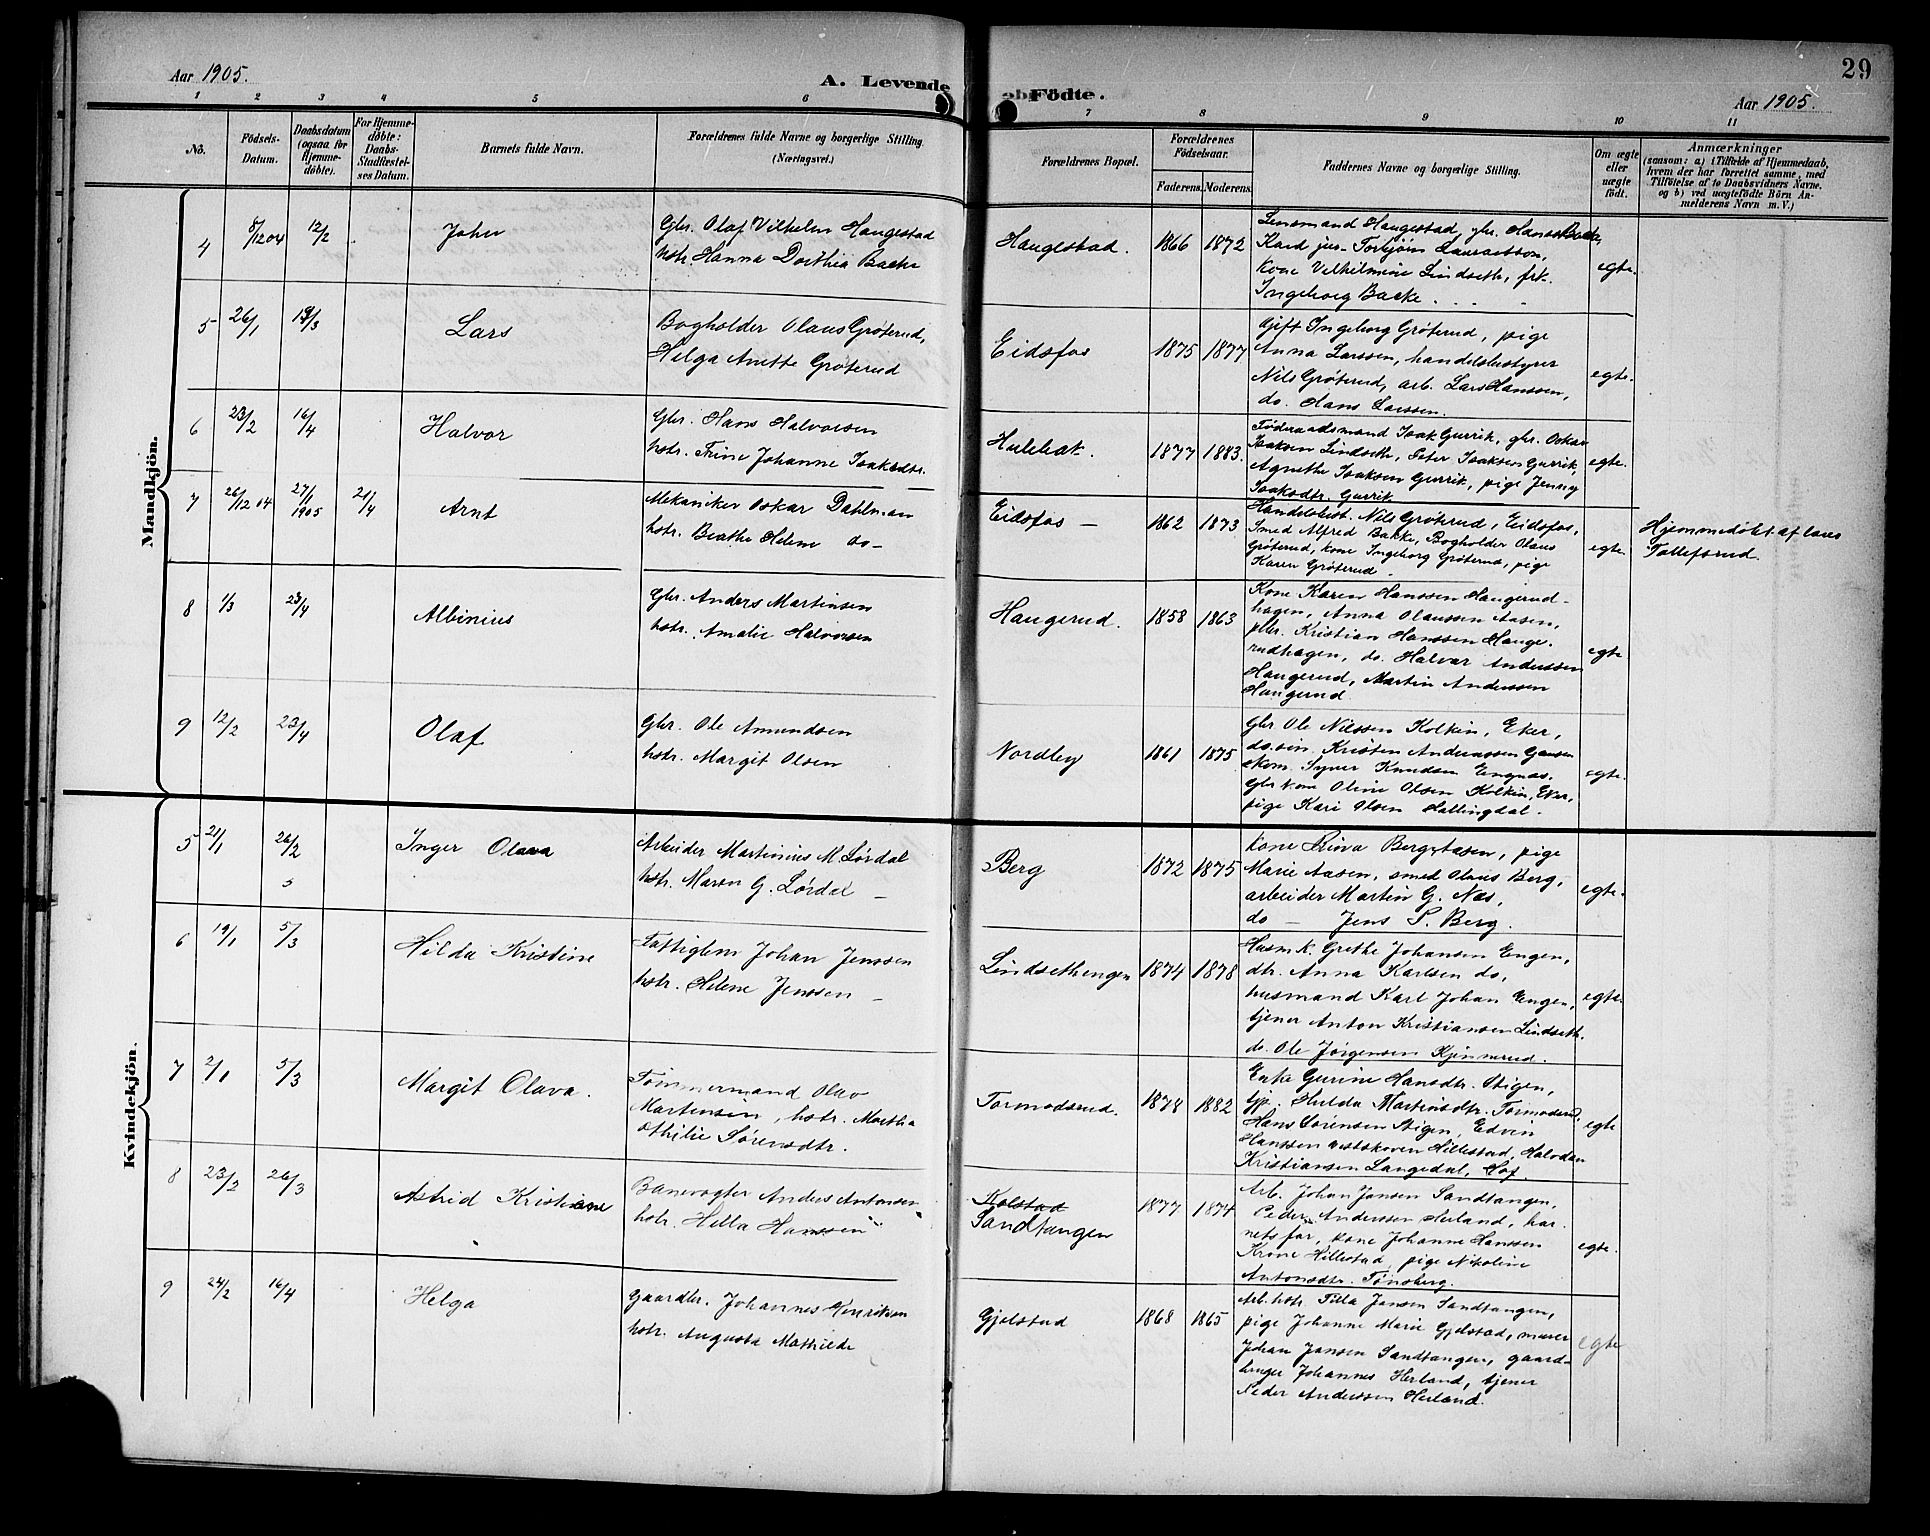 Aar 1905.
A. Levende Födte.
Aar 1905.
29
1 2 3 4 5 6 7 8 9 10 11
No.
Födsels-Datum.
Daabsdatum (ogsaa for Hjemme-döbte).
For Hjemme-döbte: Daabs-Stadfæstel-ses Datum.
Barnets fulde Navn.
Forældrenes fulde Navne og borgerlige Stilling.
(Næringsvei.)
Forældrenes Bopæl.
Forældrenes Födselsaar.
Faderens. Moderens.
Faddernes Navne og borgerlige Stilling.
Om ægte eller uægte födt.
Anmærkninger
(saasom: a) i Tilfælde af Hjemmedaab,
hvem der har forrettet samme, med
Tilföielse af to Daabsvidners Navne,
og b) ved uægtefödte Börn An-
melderens Navn m. V.)
Mandkjön.
4 8/12 04 12/2 John
Gbr. Olaf Vilhelm Haugestad
hstr. Hanna Dorthia Backe
Haugestad. 1866 1872
Lensmand Haugestad, gbr. Hans Backe,
Kand jur. Torbjörn
Kone Vilhelmine Lindseth, frk.
Ingeborg Backe
egte.
5 26/1 19/3 Lars
Bogholder Olaus Gröterud,
Helga Anette Gröterud
Eidsfos 1875 1877
Gift Ingeborg Gröterud, pige
Anna Larssen, handelsbestyrer
Nils Gröterud, arb. Lars Hanssen,
do. Hans Larssen.
egte.
6 23/2 16/4 Halvor
Gbr. Hans Halvorsen
hstr. Trine Johanne Isaksdtr.
Hulebak. 1877 1883.
Föderaadsmand Isak Gurrik, gbr. Oskar
Isaksen Lindseth, Peter Isaksen Gurrik,
Agnethe Isaksen Gurrik, pige Jenny
Isaksdtr. Gurrik.
egte.
7 26/12 04 27/1 1905 21/4 Arnt
Mekaniker Oskar Dahlman
hstr. Beathe Helene do-
Eidsfos - 1862 1873
Handelsbest. Nils Gröterud, Eidsfos,
Smed Alfred Bakke, Bogholder Olaus
Gröterud, kone Ingeborg Gröterud, pige
Karen Gröterud.
egte.
Hjemmedöbt af Lars
Tollefsrud.
8 1/3 23/4 Albinius
Gbr. Anders Martinsen
hstr. Amalie Halvorsen
Haugerud. 1858 1863
Kone Karen Hanssen Haugerud-
hagen, Anna Olaussen Aasen,
gbr. Kristian Hanssen Hauge-
rudhagen, do. Halvar Anderssen
Haugerud, Martin Anderssen
Haugerud
egte
9 12/2 23/4 Olaf
Gbr. Ole Amundsen
hstr. Margit Olsen
Nordby 1861 1875
Gbr Ole Nilssen Kolkin, Eker,
do. Kristen Anderssen
Syver Knudsen Engnæs.
Gbr kone Oline Olsen Kolkin, Eker,
pige Kari Olsen Hallingdal.
egte.
Kvindekjön.
5 21/1 26/2 Inger Olava
Arbeider Martinius M. Lördal
hstr. Maren G. Lördal -
Berg 1872 1875
Kone Rinva Bergstasen, pige
Marie Aasen, smed Olaus Berg,
arbeider Martin G. Næs,
do - Jens S. Berg.
egte.
6 19/1 5/3 Hilda Kristine
Fattiglem Johan Jenssen
hstr. Helene Jenssen -
Lindsethengen 1874 1878
Husm.k. Grethe Johansen Engen,
dtr. Anna Karlsen do,
husmand Karl Johan Engen,
tjener Anton Kristiansen Lindseth.
do. Ole Jörgensen Kjinnerud.
egte
7 2/1 5/3 Margit Olava.
Tömmermand Olav
Martensen, hstr. Martha
Othilie Sörensdtr.
Tormodsrud. 1878 1882
Enke Gurine Hansdtr. Stigen,
Gp. Hulda Martinsdtr. Tormodsrud,
Hans Sörensen Stigen, Edvin
Hanssen Vestskoven Hillestad, Halvdan
Kristiansen Langedal, Hof.
egte
8 23/2 26/3 Astrid Kristiane
Banevogter Anders Antonsen
hstr. Hella Hanssen
Kolstad
Sandtangen 1877 1874
Arb. Johan Jansen Sandtangen,
Peder Anderssen Herland, bar-
nets far, kone Johanne Hanssen
Krone Hillestad, pige Nikoline
Antonsdtr. Tönsberg.
egte.
9 24/2 16/4 Helga
Gaardbr. Johannes Henriksen
hstr. Augusta Mathilde
Gjelstad 1868 1865
Arb. hstr. Tilla Jansen Sandtangen,
pige Johanne Marie Gjelstad, murer
Johan Jansen Sandtangen, gaard-
bruger Johannes Herland, tjener
Peder Anderssen Herland.
egte